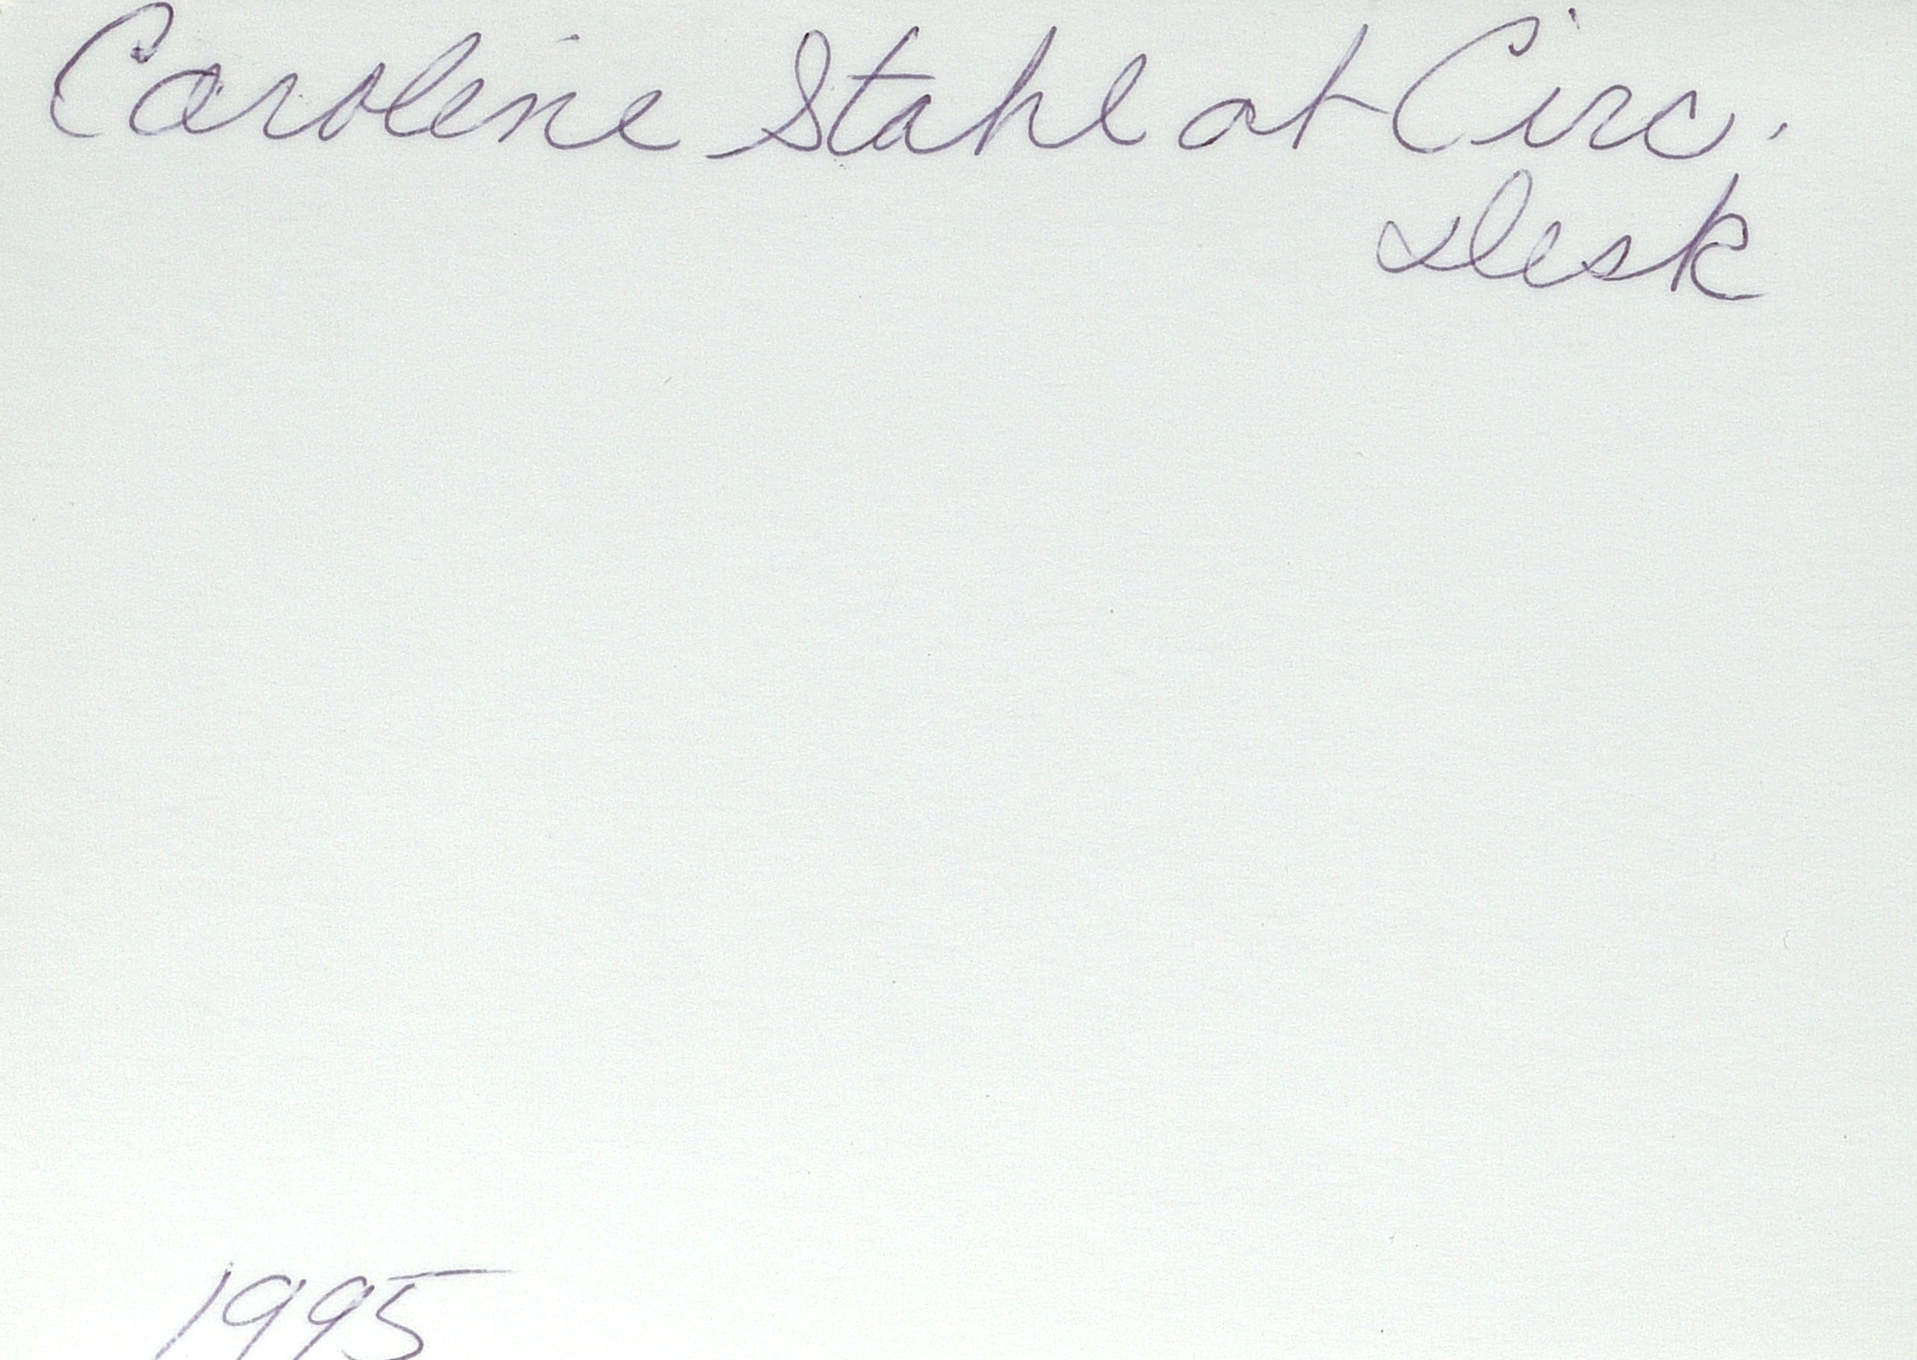 Caroline Stahl at Circ.
Desk
1995